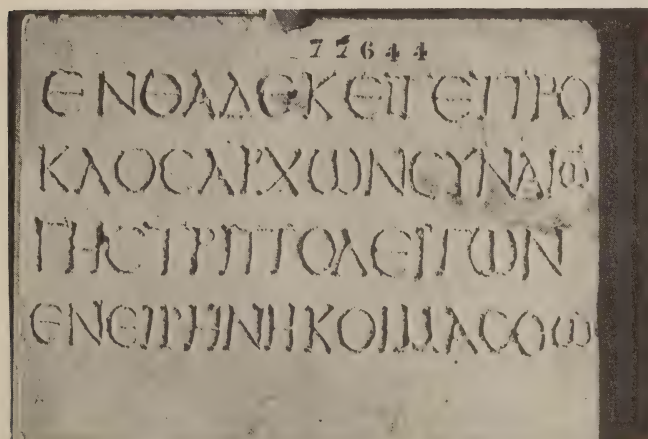 77644
ΕΝΘΑΔΕΚΕΙΤΕΠΡΟ
ΚΛΟCΑΡΧΩΝCΥΝΑΓΩ
ΓΗCΤΡΙΠΟΛΕΙΤΩΝ
ΕΝΕΙΡΗΝΗΚΟΙΜΑCΘΩ